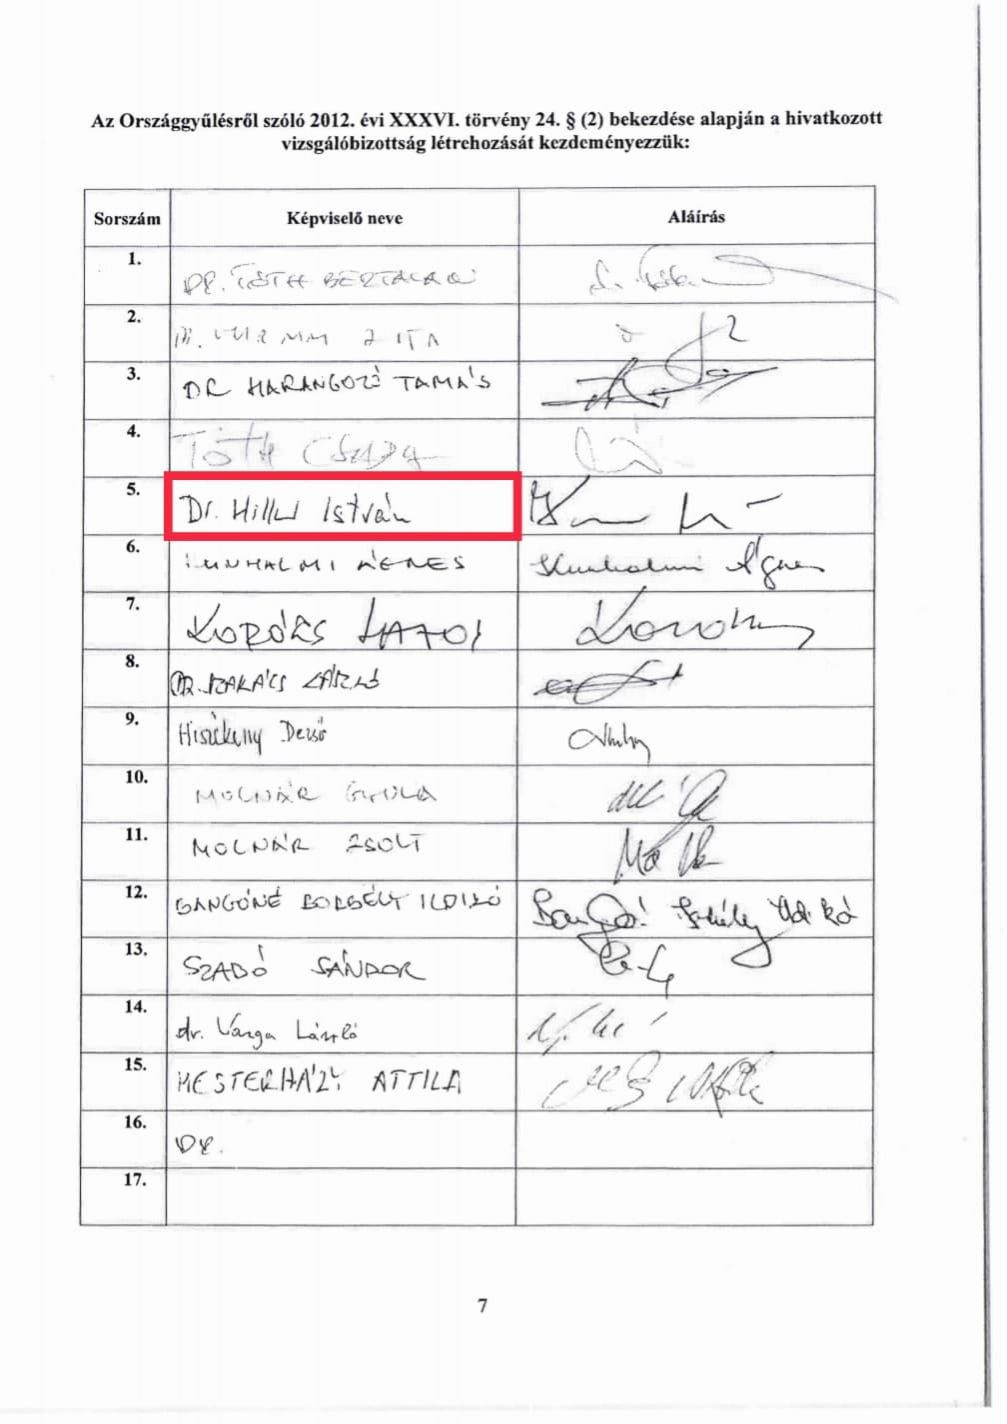 Az Országgyűlésről szóló 2012. évi XXXVI. törvény 24. § (2) bekezdése alapján a hivatkozott
vizsgálóbizottság létrehozását kezdeményezzük:
Sorszám Képviselő neve Aláírás
1. DR. TÓTH BERTALAN
2.
3. DR HARANGOZÓ TAMÁS
4. Tóth Csaba
5. Dr. Hiller István
6. KUNHALMI ÁGNES Kunhalmi Ágnes
7. KORÓZS LAJOS
8. DR. SZAKÁCS LÁSZLÓ
9. Hiszékeny Dezső
10. MOLNÁR GYULA
11. MOLNÁR ZSOLT
12. BANGÓNÉ BORBÉLY ILDIKÓ Bangóné Borbély Ildikó
13. SZABÓ SÁNDOR
14. dr. Varga László
15. MESTERHÁZY ATTILA
16. DR.
17.
7